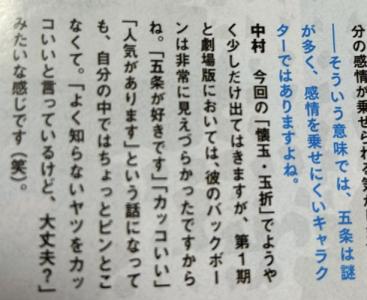 分の感情が乗せられる気がし
――そういう意味では、五条は謎
が多く、感情を乗せにくいキャラク
ターではありますよね。
中村　今回の「懐玉・玉折」でようや
く少しだけ出てはきますが、第1期
と劇場版においては、彼のバックボー
ンは非常に見えづらかったですから
ね。「五条が好きです」「カッコいい」
「人気があります」という話になって
も、自分の中ではちょっとピンとこ
なくて。「よく知らないヤツをカッ
コいいと言っているけど、大丈夫？」
みたいな感じです（笑）。